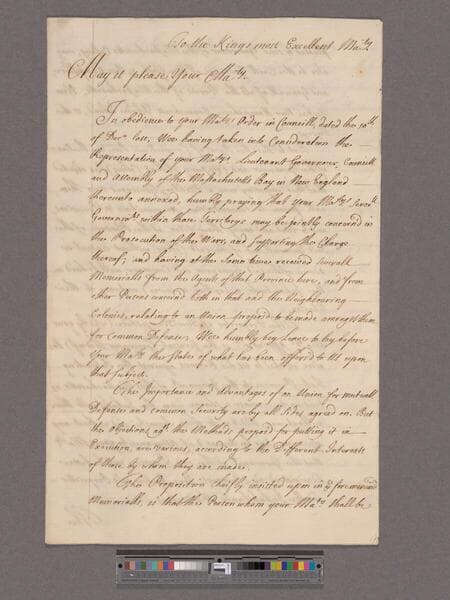 To the Kings most Excellent Ma.ty
May it please Your Ma.ty
In obedience to your Ma.tys Order in Councill, dated the 10th
of Decr last, Wee having taken into Consideration the
Representation of your Ma.tys Lieutenant Governour, Councill
and Assembly of the Massachusetts Bay in New England
hereunto annexed, humbly praying that your Ma.tys
Governmts within those Territorys may be joyntly concerned in
the Prosecution of the Warr, and Supporting the Charge
thereof; and having at the same time received severall
Memorialls from the Agents of that Province here, and from
other Persons concernd both in that and the Neighbouring
Colonies, relating to an Union proposed to be made amongst them
for Common Defense; Wee humbly beg Leave to lay before
Your Ma.ty the State of what has been offered to Us upon
that Subject.
The Importance and Advantages of an Union for mutuall
Defense and common Security are by all Sides agreed on. But
the objections agst the Methods proposd for putting it in
Execution are various, according to the Different Interests
of those by whom they are made.
The Proposition chiefly insisted upon in ye forementiond
Memorialls, is that the Person whom your Ma.ty shall be